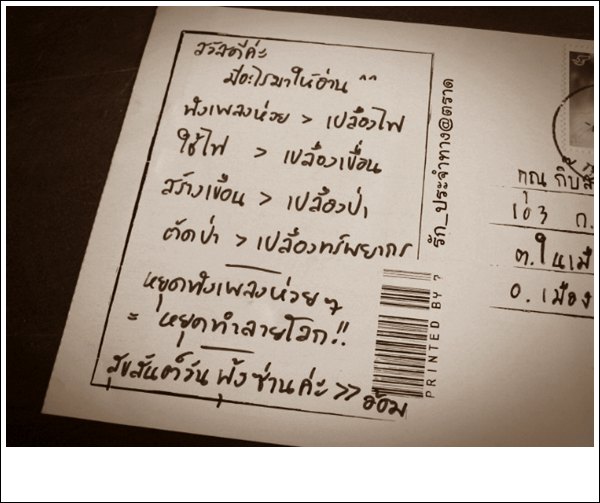 สวัสดีค่ะ
มีอะไรมาให้อ่าน ^^
ฟังเพลงห่วย > เปลืองไฟ
ใช้ไฟ > เปลืองเขื่อน
สร้างเขื่อน > เปลืองป่า
ตัดป่า > เปลืองทรัพยากร
หยุดฟังเพลงห่วยๆ
= หยุดทำลายโลก!!
สุขสันต์วันฟุ้งซ่านค่ะ >> อ้อม
รัก_ประจำทาง@ตราด
PRINTED BY ?
คุณ กิ๊บ
103 ถ.
ต.ในเมือ
อ.เมือง